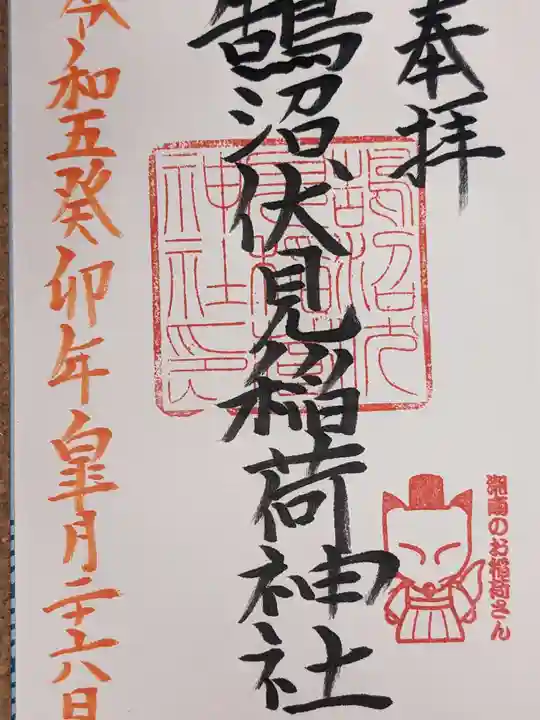 奉拝
鵠沼伏見稲荷神社
令和五癸卯年皐月二十六日
鵠沼伏
見稲荷
神社印
湘南のお稲荷さん